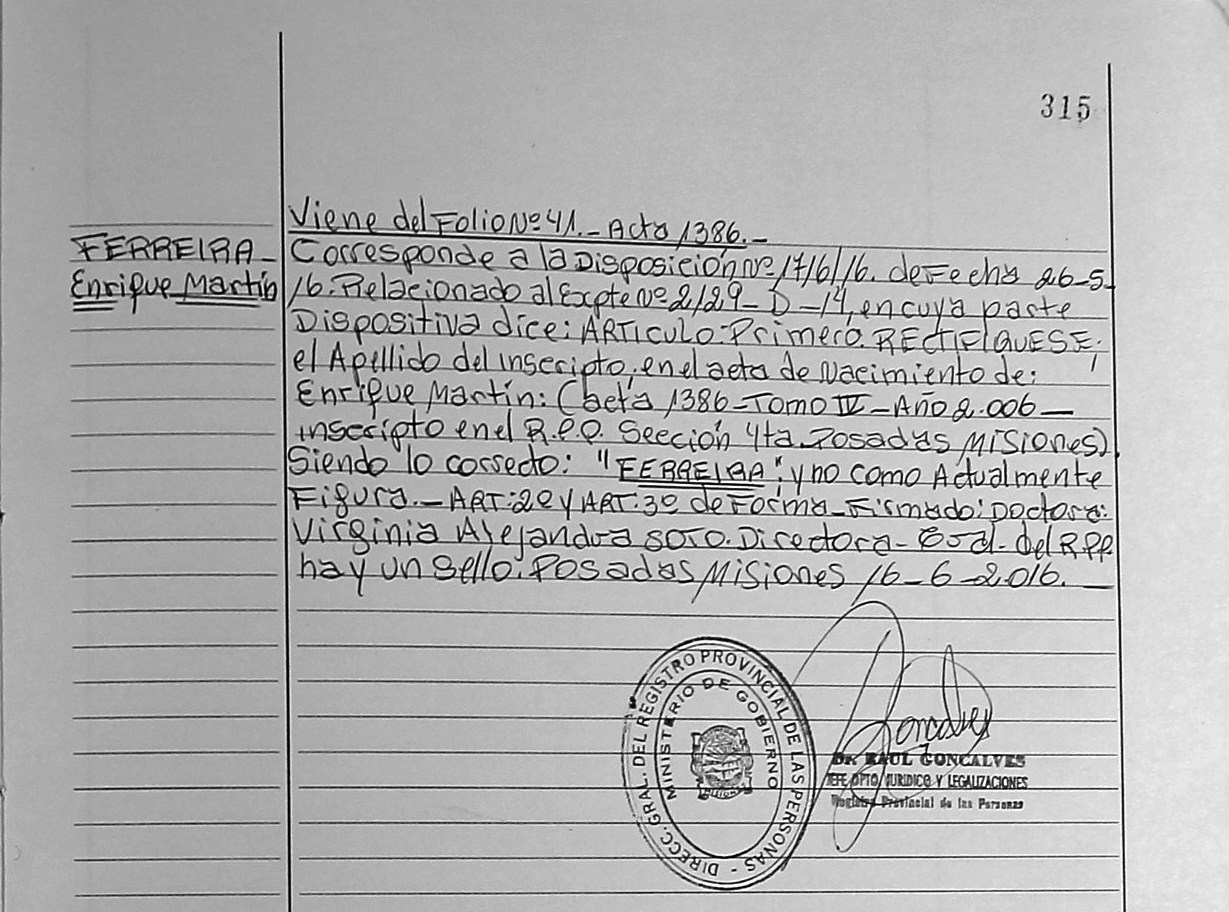 315
Viene del Folio Nº 41.- Acta 1386.-
FERREIRA-
Enrique Martín
Corresponde a la Disposición Nº 1716/16. de Fecha 26-5-
16. Relacionado al Expte Nº 2129-D-14, en cuya parte
Dispositiva dice: ARTICULO: Primero. RECTIFIQUESE;
el Apellido del inscripto, en el acta de Nacimiento de:
Enrique Martín: (acta 1386-Tomo IV-Año 2.006-
inscripto en el R.P.P. Sección 4ta. Posadas MISIONES)
Siendo lo correcto: "FERREIRA"; y no como Actualmente
Figura.- ART:2º y ART:3º de Forma-Firmado: Doctora:
Virginia Alejandra SOTO. Directora- Gral. del RPP
hay un Sello: Posadas Misiones 16-6-2.016.
DIRECC. GRAL. DEL REGISTRO PROVINCIAL DE LAS PERSONAS -
MINISTERIO DE GOBIERNO
Goncalves
Dr. RAUL GONCALVES
JEFE DPTO JURIDICO Y LEGALIZACIONES
Registro Provincial de las Personas